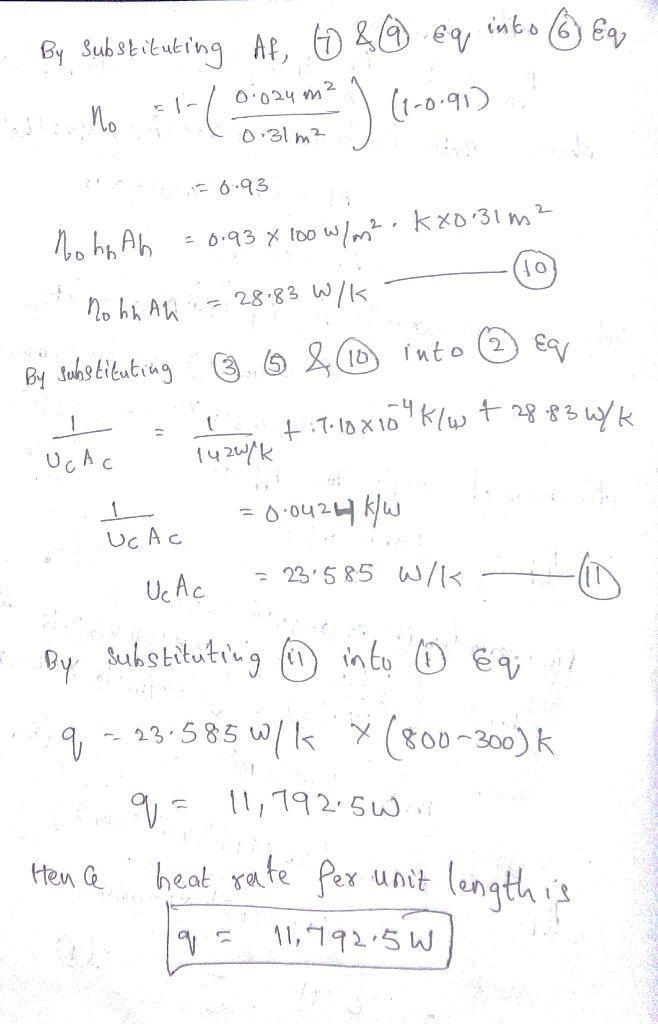 By substituting Af, ⑦ & ⑨ eq into ⑥ Eq
ηo = 1 - ( 0.024 m² / 0.31 m² ) (1-0.91)
= 0.93
ηo hh Ah = 0.93 × 100 W/m² . K × 0.31 m²
ηo hh Ah = 28.83 W/K ——— ⑩
By substituting ③ ⑤ & ⑩ into ② Eq
1/UcAc = 1/142W/K + 7.10×10⁻⁴ K/W + 28.83 W/K
1/UcAc = 0.0424 K/W
UcAc = 23.585 W/K ——— ⑪
By substituting ⑪ into ① Eq
q = 23.585 W/K × (800-300) K
q = 11,792.5W
Hence heat rate per unit length is
q = 11,792.5 W